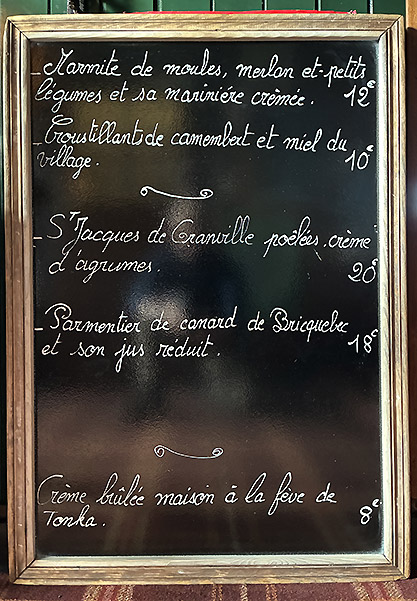 - Marmite de moules, merlan et petits
légumes et sa marinière crèmée. 12€
- Croustillants de camembert et miel du
village. 10€
- St Jacques de Granville poêlées, crème
d'agrumes. 20€
- Parmentier de canard de Bricquebec
et son jus réduit. 18€
Crème brûlée maison à la fève de
Tonka. 8€